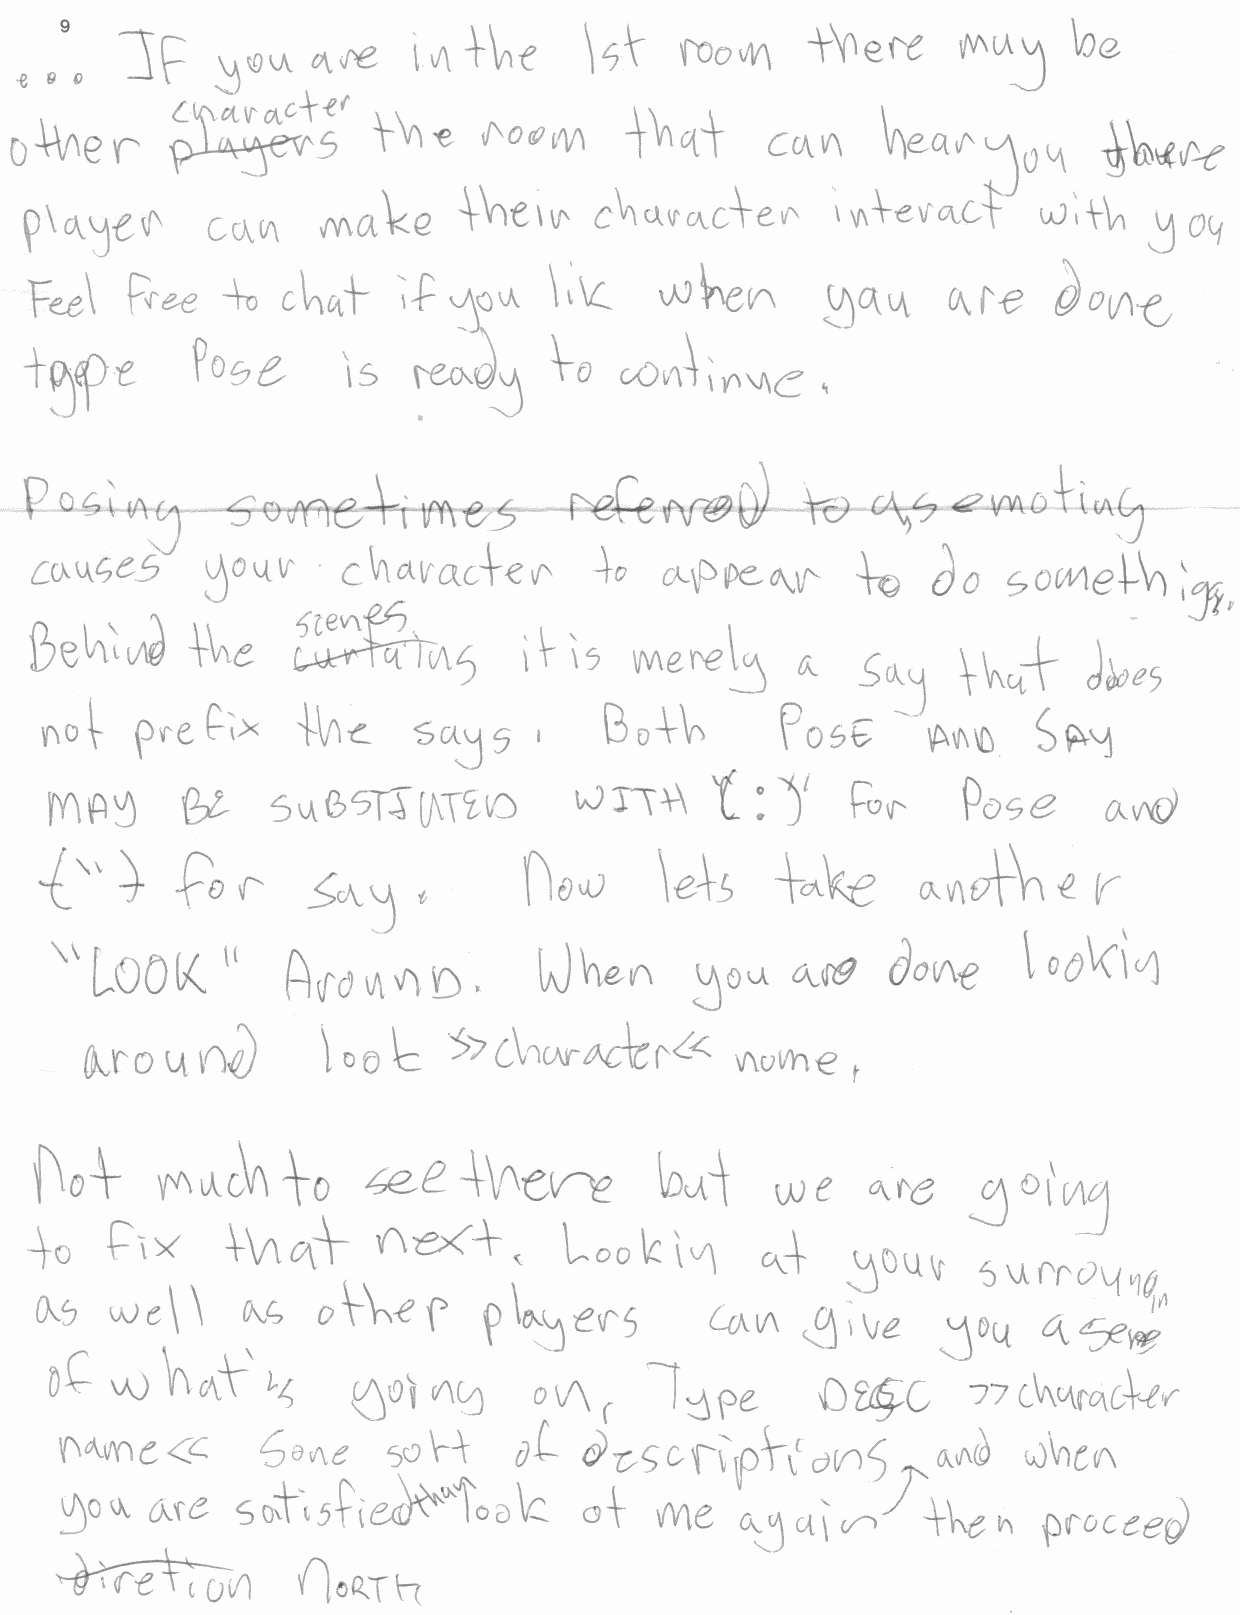 9
... If you are in the 1st room there may be
character
other players the room that can hear you there
player can make their character interact with you
Feel free to chat if you lik when you are done
type Pose is ready to continue.
Posing sometimes referred to as emoting
causes your character to appear to do somethig.
scenes
Behind the curtains it is merely a say that does
not prefix the says. Both POSE AND SAY
MAY BE SUBSTITUTED WITH "(:)" for Pose and
{"} for say. Now lets take another
"LOOK" Around. When you are done lookin
around look >>character<< name.
Not much to see there but we are going
to fix that next. Lookin at your surroundin
as well as other players can give you a sense
of what's going on, Type DESC >>character
name<< Some sort of descriptions, and when
you are satisfied than look at me again then proceed
diretion NORTH